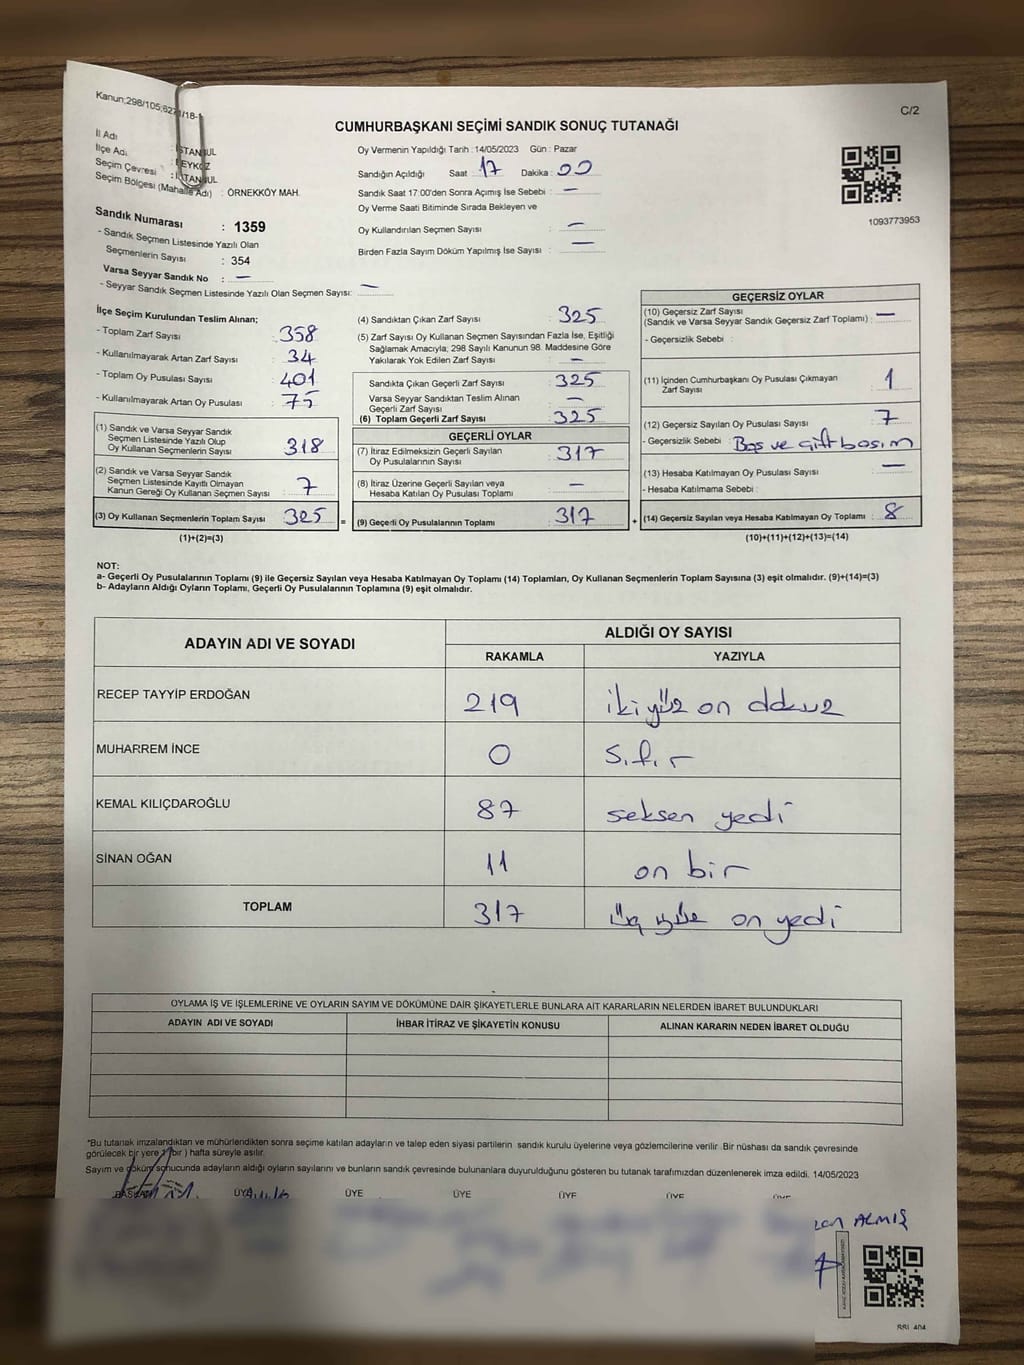 Kanun;298/105;6271/18-1
C/2
CUMHURBAŞKANI SEÇİMİ SANDIK SONUÇ TUTANAĞI
İl Adı : İSTANBUL
İlçe Adı : BEYKOZ
Seçim Çevresi : İSTANBUL
Seçim Bölgesi (Mahalle Adı) : ÖRNEKKÖY MAH.
Oy Vermenin Yapıldığı Tarih : 14/05/2023 Gün : Pazar
Sandığın Açıldığı Saat : 17 Dakika : 00
Sandık Saat 17:00'den Sonra Açımış İse Sebebi : —
Oy Verme Saati Bitiminde Sırada Bekleyen ve
Oy Kullandırılan Seçmen Sayısı : —
Birden Fazla Sayım Döküm Yapılmış İse Sayısı : —
1093773953
Sandık Numarası : 1359
- Sandık Seçmen Listesinde Yazılı Olan
Seçmenlerin Sayısı : 354
Varsa Seyyar Sandık No : —
- Seyyar Sandık Seçmen Listesinde Yazılı Olan Seçmen Sayısı: —
İlçe Seçim Kurulundan Teslim Alınan;
- Toplam Zarf Sayısı : 358
- Kullanılmayarak Artan Zarf Sayısı : 34
- Toplam Oy Pusulası Sayısı : 401
- Kullanılmayarak Artan Oy Pusulası : 75
(1) Sandık ve Varsa Seyyar Sandık
Seçmen Listesinde Yazılı Olup
Oy Kullanan Seçmenlerin Sayısı : 318
(2) Sandık ve Varsa Seyyar Sandık
Seçmen Listesinde Kayıtlı Olmayan
Kanun Gereği Oy Kullanan Seçmen Sayısı : 7
(3) Oy Kullanan Seçmenlerin Toplam Sayısı : 325
(1)+(2)=(3)
(4) Sandıktan Çıkan Zarf Sayısı : 325
(5) Zarf Sayısı Oy Kullanan Seçmen Sayısından Fazla İse, Eşitliği
Sağlamak Amacıyla; 298 Sayılı Kanunun 98. Maddesine Göre
Yakılarak Yok Edilen Zarf Sayısı : —
Sandıkta Çıkan Geçerli Zarf Sayısı : 325
Varsa Seyyar Sandıktan Teslim Alınan
Geçerli Zarf Sayısı : —
(6) Toplam Geçerli Zarf Sayısı : 325
GEÇERLİ OYLAR
(7) İtiraz Edilmeksizin Geçerli Sayılan
Oy Pusulalarının Sayısı : 317
(8) İtiraz Üzerine Geçerli Sayılan veya
Hesaba Katılan Oy Pusulası Toplamı : —
= (9) Geçerli Oy Pusulalarının Toplamı : 317
GEÇERSİZ OYLAR
(10) Geçersiz Zarf Sayısı
(Sandık ve Varsa Seyyar Sandık Geçersiz Zarf Toplamı) : —
- Geçersizlik Sebebi :
(11) İçinden Cumhurbaşkanı Oy Pusulası Çıkmayan
Zarf Sayısı : 1
(12) Geçersiz Sayılan Oy Pusulası Sayısı : 7
- Geçersizlik Sebebi : Boş ve çift basım
(13) Hesaba Katılmayan Oy Pusulası Sayısı : —
- Hesaba Katılmama Sebebi :
+ (14) Geçersiz Sayılan veya Hesaba Katılmayan Oy Toplamı : 8
(10)+(11)+(12)+(13)=(14)
NOT:
a- Geçerli Oy Pusulalarının Toplamı (9) ile Geçersiz Sayılan veya Hesaba Katılmayan Oy Toplamı (14) Toplamları, Oy Kullanan Seçmenlerin Toplam Sayısına (3) eşit olmalıdır. (9)+(14)=(3)
b- Adayların Aldığı Oyların Toplamı, Geçerli Oy Pusulalarının Toplamına (9) eşit olmalıdır.
ADAYIN ADI VE SOYADI ALDIĞI OY SAYISI
RAKAMLA YAZIYLA
RECEP TAYYİP ERDOĞAN 219 ikiyüz on dokuz
MUHARREM İNCE 0 sıfır
KEMAL KILIÇDAROĞLU 87 seksen yedi
SİNAN OĞAN 11 on bir
TOPLAM 317 üç yüz on yedi
OYLAMA İŞ VE İŞLEMLERİNE VE OYLARIN SAYIM VE DÖKÜMÜNE DAİR ŞİKAYETLERLE BUNLARA AİT KARARLARIN NELERDEN İBARET BULUNDUKLARI
ADAYIN ADI VE SOYADI İHBAR İTİRAZ VE ŞİKAYETİN KONUSU ALINAN KARARIN NEDEN İBARET OLDUĞU
*Bu tutanak imzalandıktan ve mühürlendikten sonra seçime katılan adayların ve talep eden siyasi partilerin sandık kurulu üyelerine veya gözlemcilerine verilir .Bir nüshası da sandık çevresinde
görülecek bir yere 1(bir ) hafta süreyle asılır.
Sayım ve döküm sonucunda adayların aldığı oyların sayılarını ve bunların sandık çevresinde bulunanlara duyurulduğunu gösteren bu tutanak tarafımızdan düzenlenerek imza edildi. 14/05/2023
BAŞKAN ÜYE ÜYE ÜYE ÜYE ÜYE ÜYE
ALMIŞ